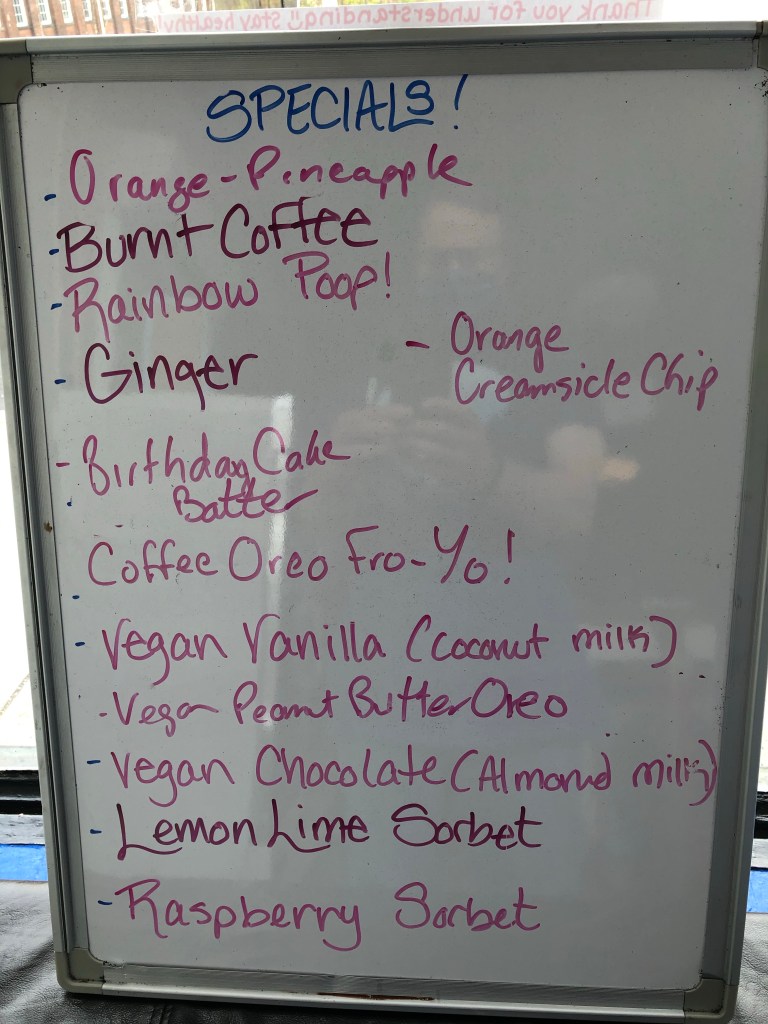 Thank you for understanding!! Stay healthy!
SPECIALS!
- Orange-Pineapple
- Burnt Coffee
- Rainbow Poop!
- Ginger
- Orange
Creamsicle Chip
- Birthday Cake
Batter
- Coffee Oreo Fro-Yo!
- Vegan Vanilla (Coconut milk)
- Vegan Peanut Butter Oreo
- Vegan Chocolate (Almond milk)
- Lemon Lime Sorbet
- Raspberry Sorbet